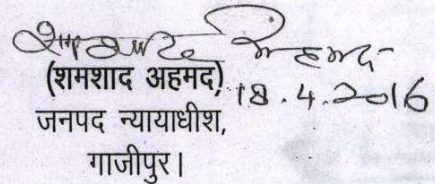 शमशाद अहमद
(शमशाद अहमद)
18.4.2016
जनपद न्यायाधीश,
गाजीपुर।